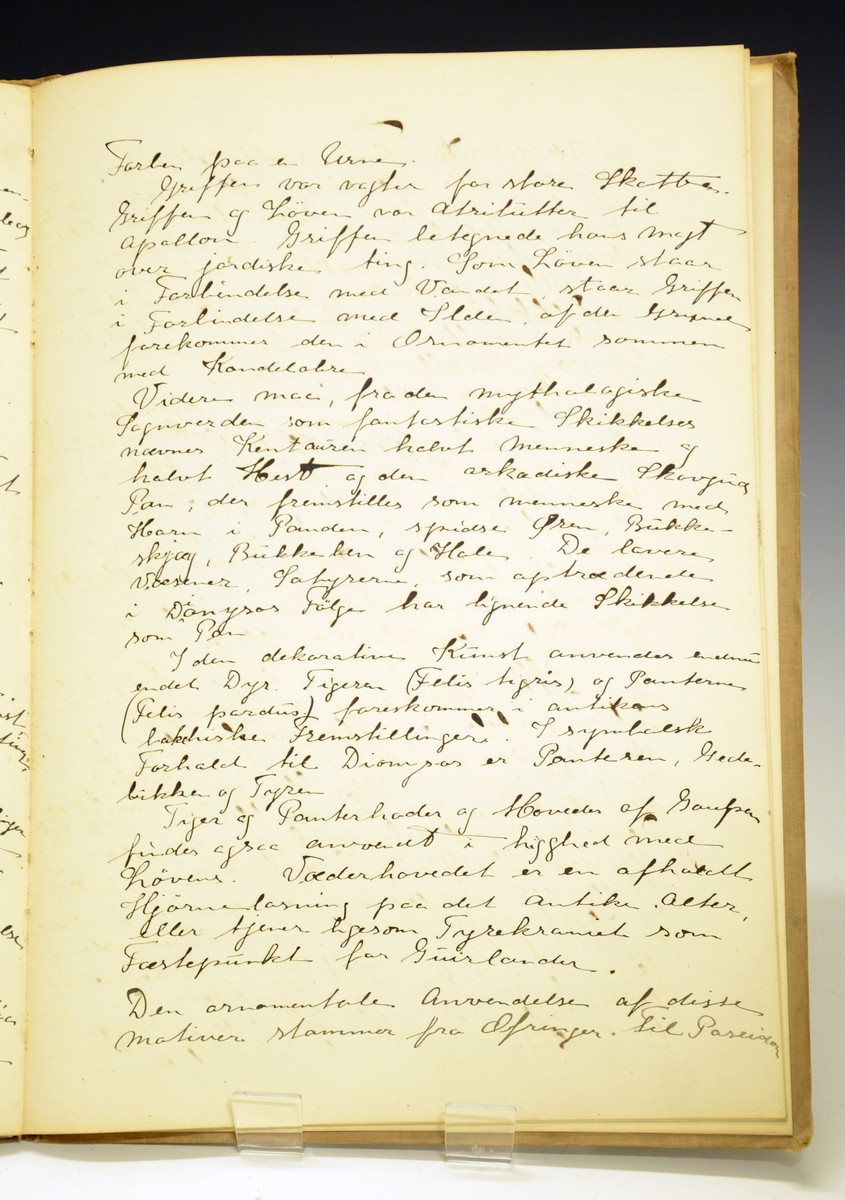 Forben paa en Urne.
Griffen var vogter for store Skatter.
Griffen og Löven var Atributter til
Apollon. Griffen betegnede hans Magt
over jordiske ting. Som Löven staar
i Forbindelse med Vandet staar Griffen
i Forbindelse med Ilden, af den Grund
forekommer den i Ornamentet sammen
med Kandelabre
Videre maa, fra den mythologiske
Sagnverden som fantastiske Skikkelser
nævnes Kentauren halvt Menneske og
halvt Hest og den arkadiske Skovgud
Pan, der fremstilles som menneske med
Horn i Panden, spidse Øren, Bukke-
skjæg, Bukkeben og Hale. De lavere
Væsener, Satyrerne, som optrædende
i Dionysos Fölge har lignende Skikkelse
som Pan
I den dekorative Kunst anvendes endnu
endel Dyr. Tigeren (Felis tigris) og Panteren
(Felis pardus) foreskommer i antikens
bakchiske Fremstillinger. I symbolsk
Forhold til Dionysos er Panteren, Gede-
bukken og Tyren
Tiger og Panterhoder og Hoveder af Gaupen
findes ogsaa anvendt i lighed med
Lövens. Væderhovedet er en afholdt
Hjörnelösning paa det Antike Alter,
eller tjener ligesom Tyrekraniet som
Fæstepunkt for Guirlander.
Den ornamentale Anvendelse af disse
Motiver stammer fra Ofringer. Til Poseidon